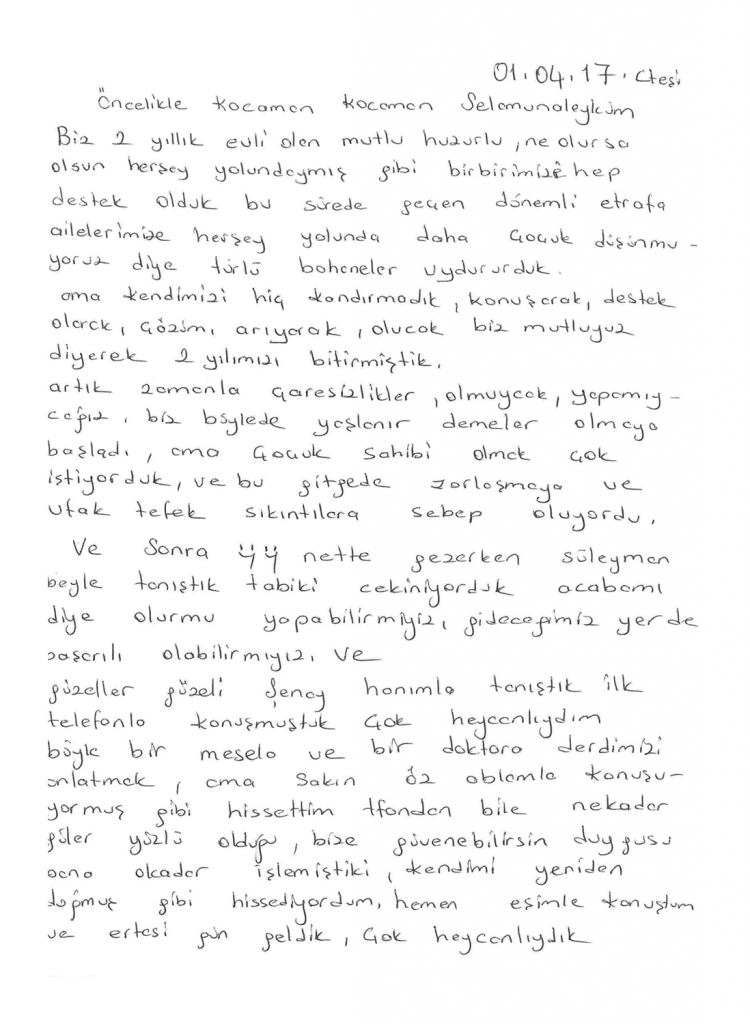 01.04.17. Ctesi
Öncelikle kocaman kocaman Selamunaleyküm
Biz 2 yıllık evli olan mutlu huzurlu, ne olursa
olsun herşey yolundaymış gibi birbirimize hep
destek olduk bu sürede geçen dönemli etrafa
ailelerimize herşey yolunda daha çocuk düşünmü-
yoruz diye türlü bahaneler uydururduk.
ama kendimizi hiç kandırmadık, konuşarak, destek
olarak, çözüm, arıyarak, olucak biz mutluyuz
diyerek 2 yılımızı bitirmiştik.
artık zamanla çaresizlikler, olmuycak, yapamıy-
cağız, biz böylede yaşlanır demeler olmaya
başladı, ama çocuk sahibi olmak çok
istiyorduk, ve bu gitgede zorlaşmaya ve
ufak tefek sıkıntılara sebep oluyordu.
Ve Sonra yy nette gezerken süleyman
beyle tanıştık tabiki cekiniyorduk acabamı
diye olurmu yapabilirmiyiz, gideceğimiz yerde
başarılı olabilirmıyız. ve
güzeller güzeli Şenay hanımla tanıştık ilk
telefonla konuşmuştuk çok heycanlıydım
böyle bir mesela ve bir doktora derdimizi
anlatmak, ama Sakın öz ablamla konuşu-
yormuş gibi hissettim tfondan bile nekadar
güler yüzlü olduğu, bize güvenebilirsin duygusu
bana okadar işlemiştiki, kendimi yeniden
doğmuş gibi hissediyordum, hemen eşimle konuştum
ve ertesi gün geldik, çok heycanlıydık